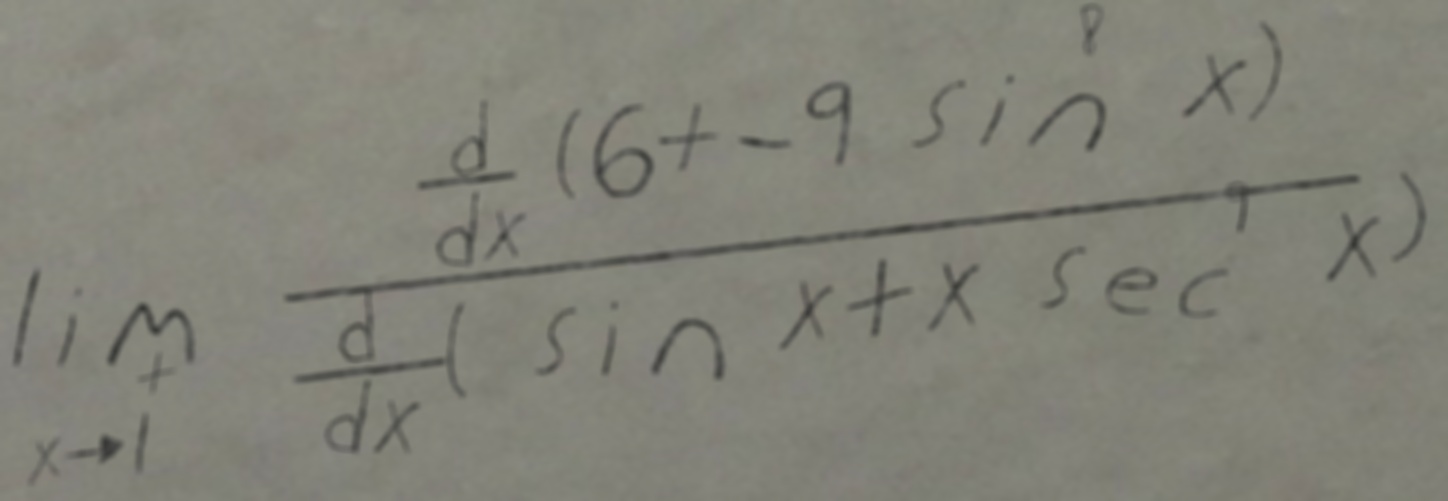 \lim_{x \to 1^{+}} \frac{\frac{d}{dx}(6+-9\sin^{8}x)}{\frac{d}{dx}(\sin x+x\sec^{9}x)}